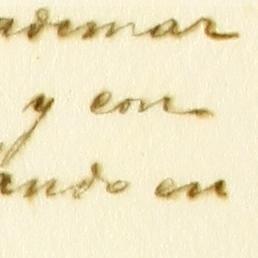 ademar
y con
ando en